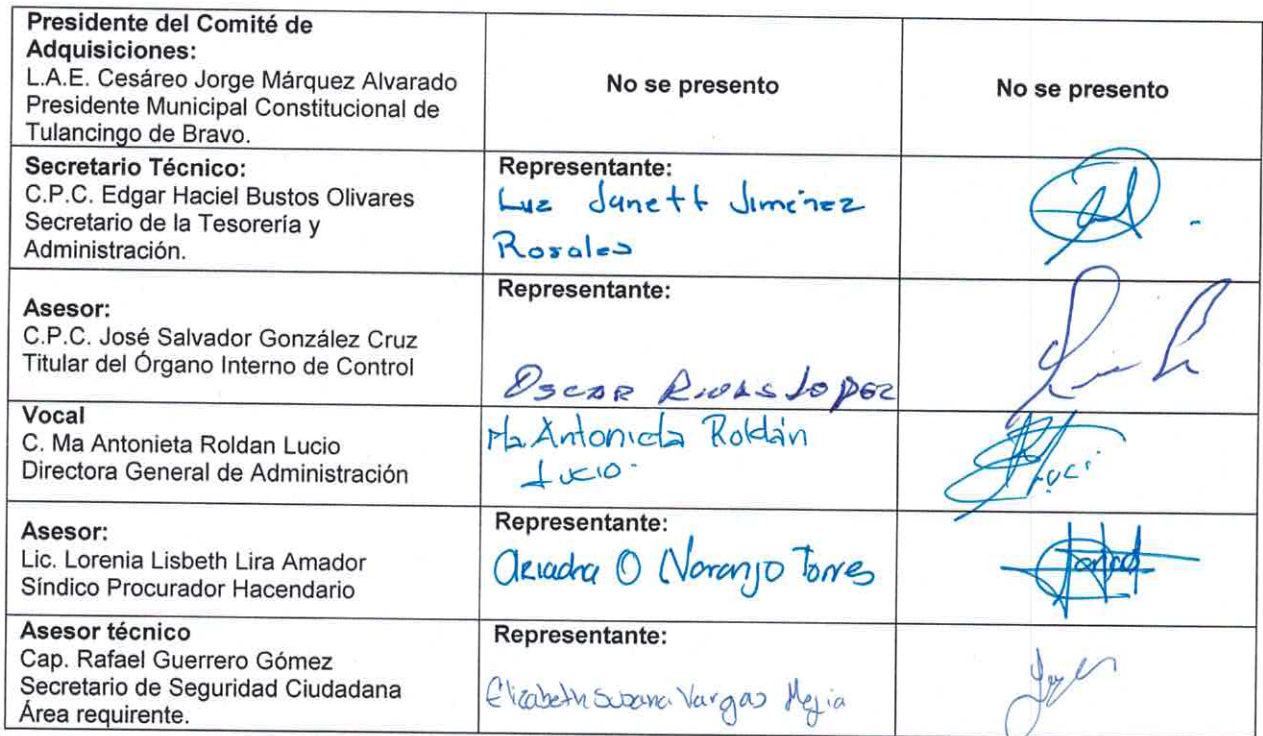 Presidente del Comité de
Adquisiciones:
L.A.E. Cesáreo Jorge Márquez Alvarado
Presidente Municipal Constitucional de
Tulancingo de Bravo.
No se presento
No se presento
Secretario Técnico:
C.P.C. Edgar Haciel Bustos Olivares
Secretario de la Tesorería y
Administración.
Representante:
Luz Janett Jiménez
Rosales
Asesor:
C.P.C. José Salvador González Cruz
Titular del Órgano Interno de Control
Representante:
OSCAR RIVAS LOPEZ
Vocal
C. Ma Antonieta Roldan Lucio
Directora General de Administración
Ma. Antonieta Roldán
Lucio.
Asesor:
Lic. Lorenia Lisbeth Lira Amador
Síndico Procurador Hacendario
Representante:
Ariadna O Naranjo Torres
Asesor técnico
Cap. Rafael Guerrero Gómez
Secretario de Seguridad Ciudadana
Área requirente.
Representante:
Elizabeth Susana Vargas Mejia